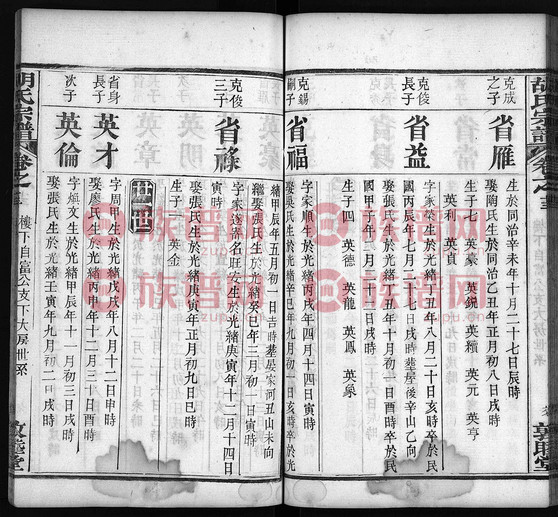 胡氏宗譜
卷之
敦睦堂
克成
之子
省雁
生於同治辛未年十月二十七日辰時
娶陶氏生於同治乙丑年正月初八日戌時
生子七 英豪 英銳 英積 英元 英亨
英利 英貞
克俊
長子
省益
字家榮生於光緒丁丑年八月二十日亥時卒於民
國丙辰七月二十七日戌時葬屋後辛山乙向
娶張氏生於光緒戊寅年十二月十日戌時卒於民
國甲子年八月初一日戌時
生子四 英德 英龍 英鳳 英象
克錫
嗣子
省福
字家順生於光緒丙戌年四月十四日寅時
娶張氏生於光緒戊子年十月初一日亥時卒於光
緒辛卯年五月初一日吉時葬晏家河丑山未向
繼娶張氏生於光緒癸巳年三月初一日寅時
克俊
三子
省祿
字家遂派名正安生於光緒庚寅年十二月十四日
寅時
娶張氏生於光緒庚寅年正月初九日巳時
生子一 英金
廿四世
省身
長子
英才
字周甲生於光緒戊戌年八月十二日申時
娶廖氏生於光緒丙申年十二月三十日酉時
次子
英倫
字煥文生於光緒甲辰年十一月初三日戌時
娶余氏生於光緒壬寅年九月初二日戌時
胡氏宗譜
卷之
樓下自富公支下大房世系
敦睦堂
族譜網
zupu.cn